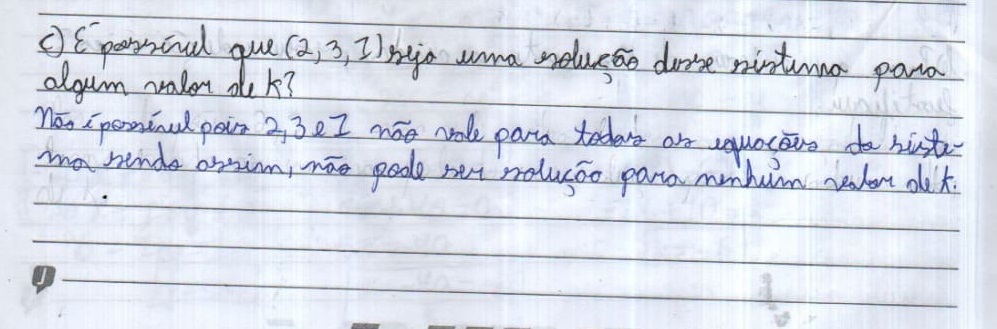 c) É possível que (2, 3, 1) seja uma solução desse sistema para
algum valor de k?
Não é possível pois 2, 3 e 1 não vale para todas as equações do siste-
ma sendo assim, não pode ser solução para nenhum valor de k.